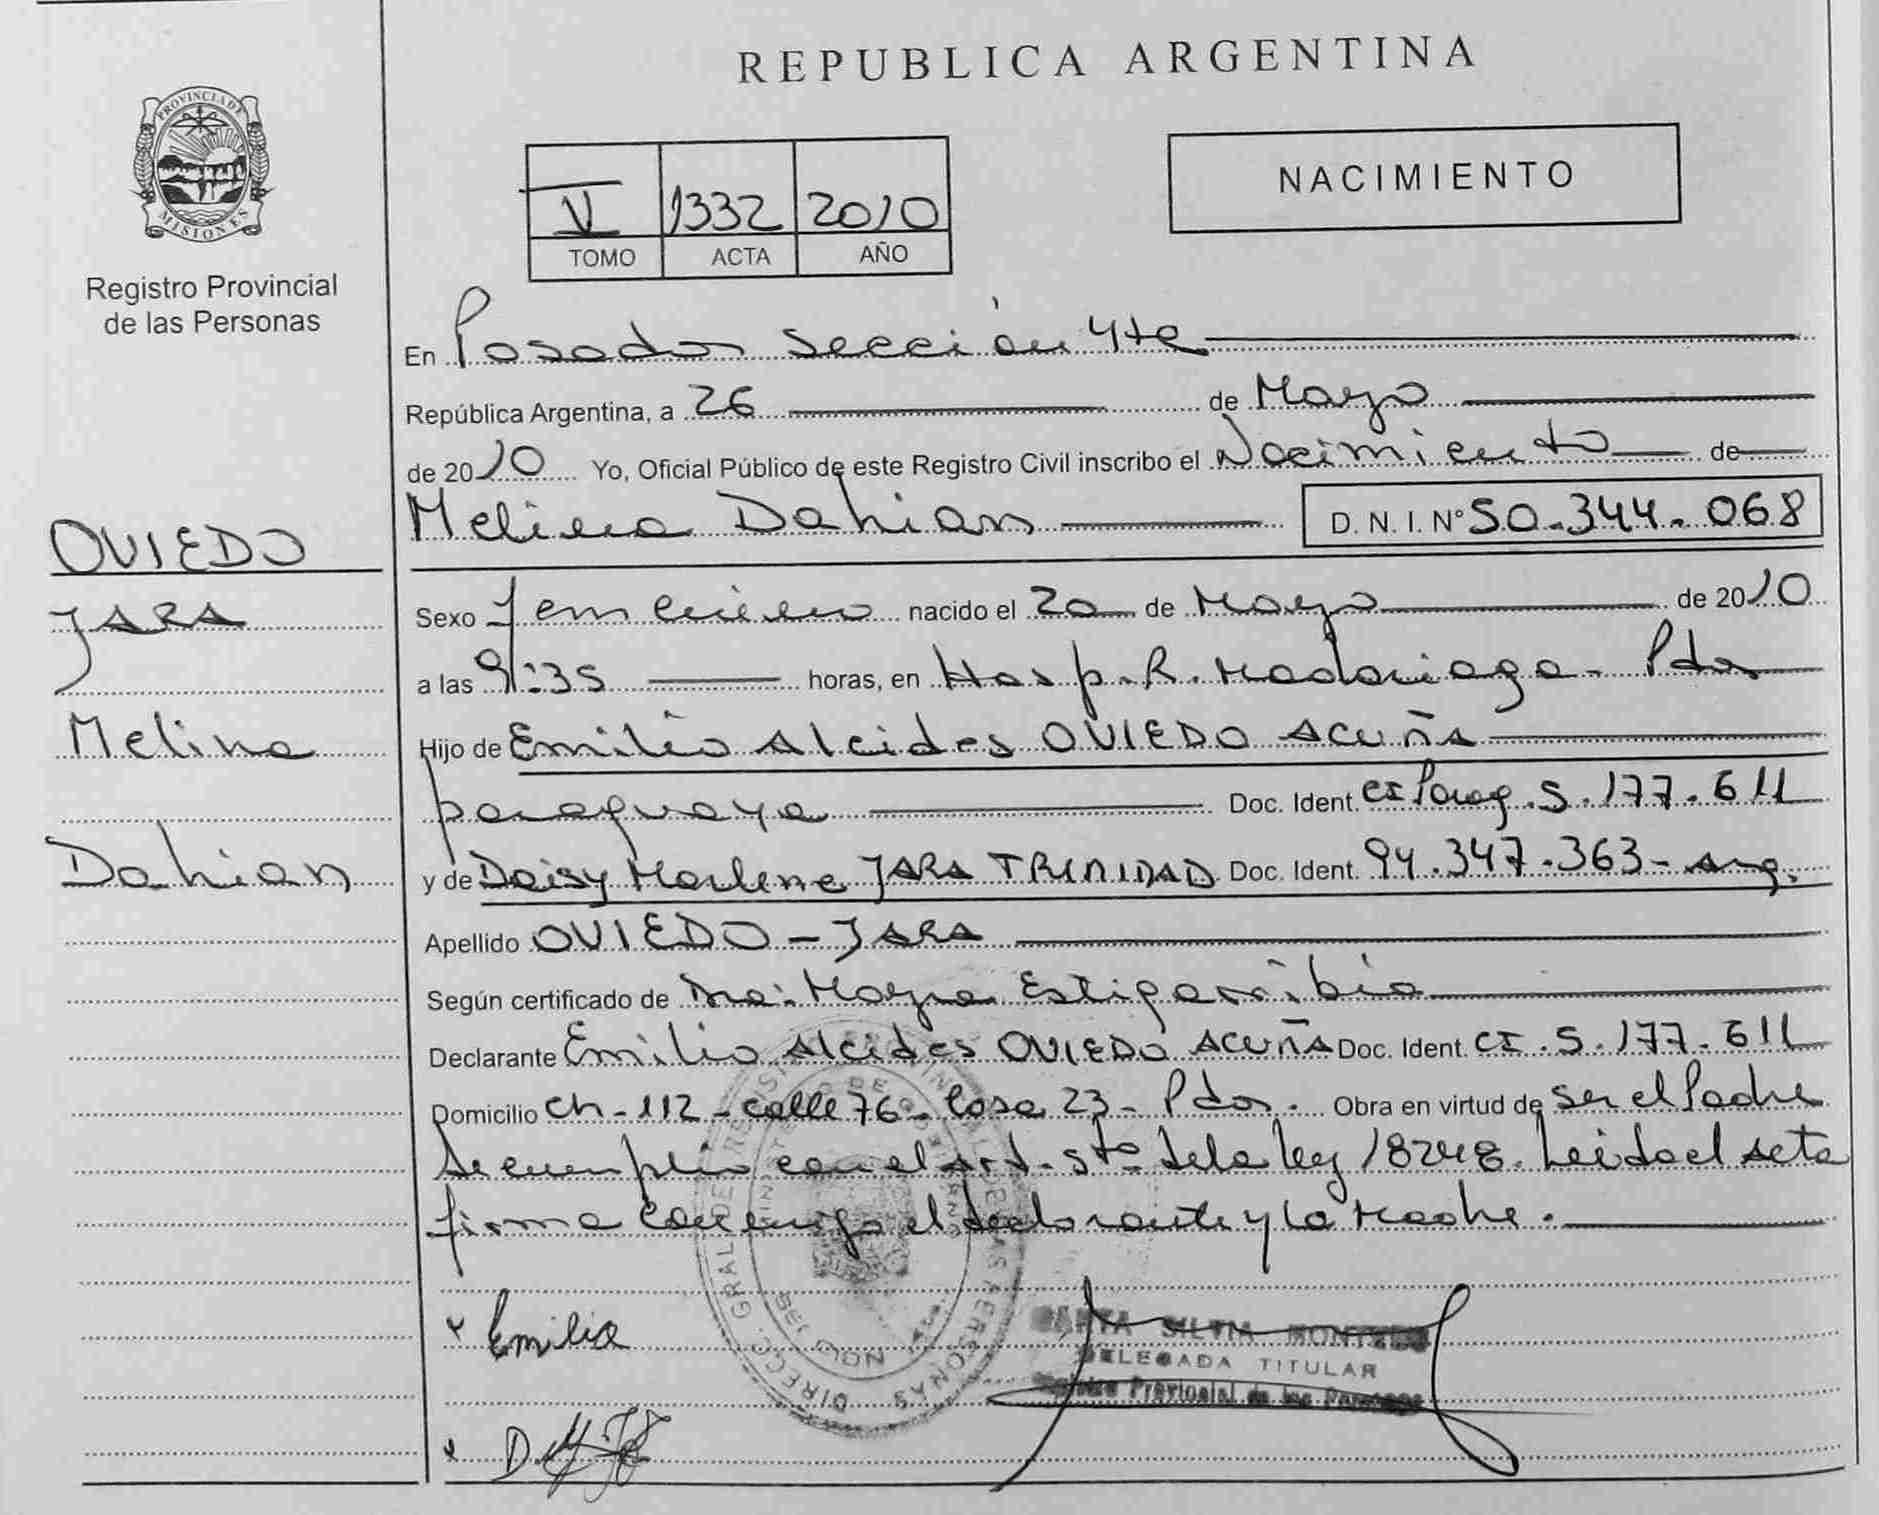 REPUBLICA ARGENTINA
PROVINCIA DE
MISIONES
Registro Provincial
de las Personas
V 1332 2010
TOMO ACTA AÑO
NACIMIENTO
En Posadas Sección 4ta
República Argentina, a 26 de Mayo
de 2010 Yo, Oficial Público de este Registro Civil inscribo el Nacimiento de
Melina Dahian D. N. I. N° 50.344.068
OVIEDO
JARA
Melina
Dahian
Sexo femenino nacido el 20 de Mayo de 2010
a las 9:35 horas, en Hosp. R. Madariaga - Pdas
Hijo de Emilio Alcides OVIEDO ACUÑA
paraguaya Doc. Ident. CI Parag. 5.177.611
y de Deisy Marlene JARA TRINIDAD Doc. Ident. 94.347.363 - Arg.
Apellido OVIEDO - JARA
Según certificado de Dra: Mayra Estigarribia
Declarante Emilio Alcides OVIEDO ACUÑA Doc. Ident. CI. 5.177.611
Domicilio Ch - 112 - calle 76 - Casa 23 - Pdas. Obra en virtud de ser el Padre
Se cumplio con el Art. 5to de la ley 18248. Leida el acta
firma conmigo el declarante y la Madre.
Emilio
SILVIA
DELEGADA TITULAR
Provincial de las Personas
D.